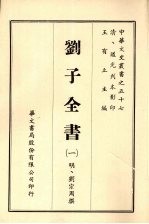 中華文史叢書之五十七
清•道光刊本影印
王有立主編
劉子全書
(一) 明•劉宗周撰
華文書局股份有限公司印行